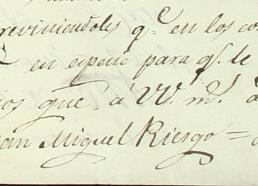 reviniendoles q.e en los co
en especie para q.e le
ios que á VV. m.s a
an Miguel Riesgo =